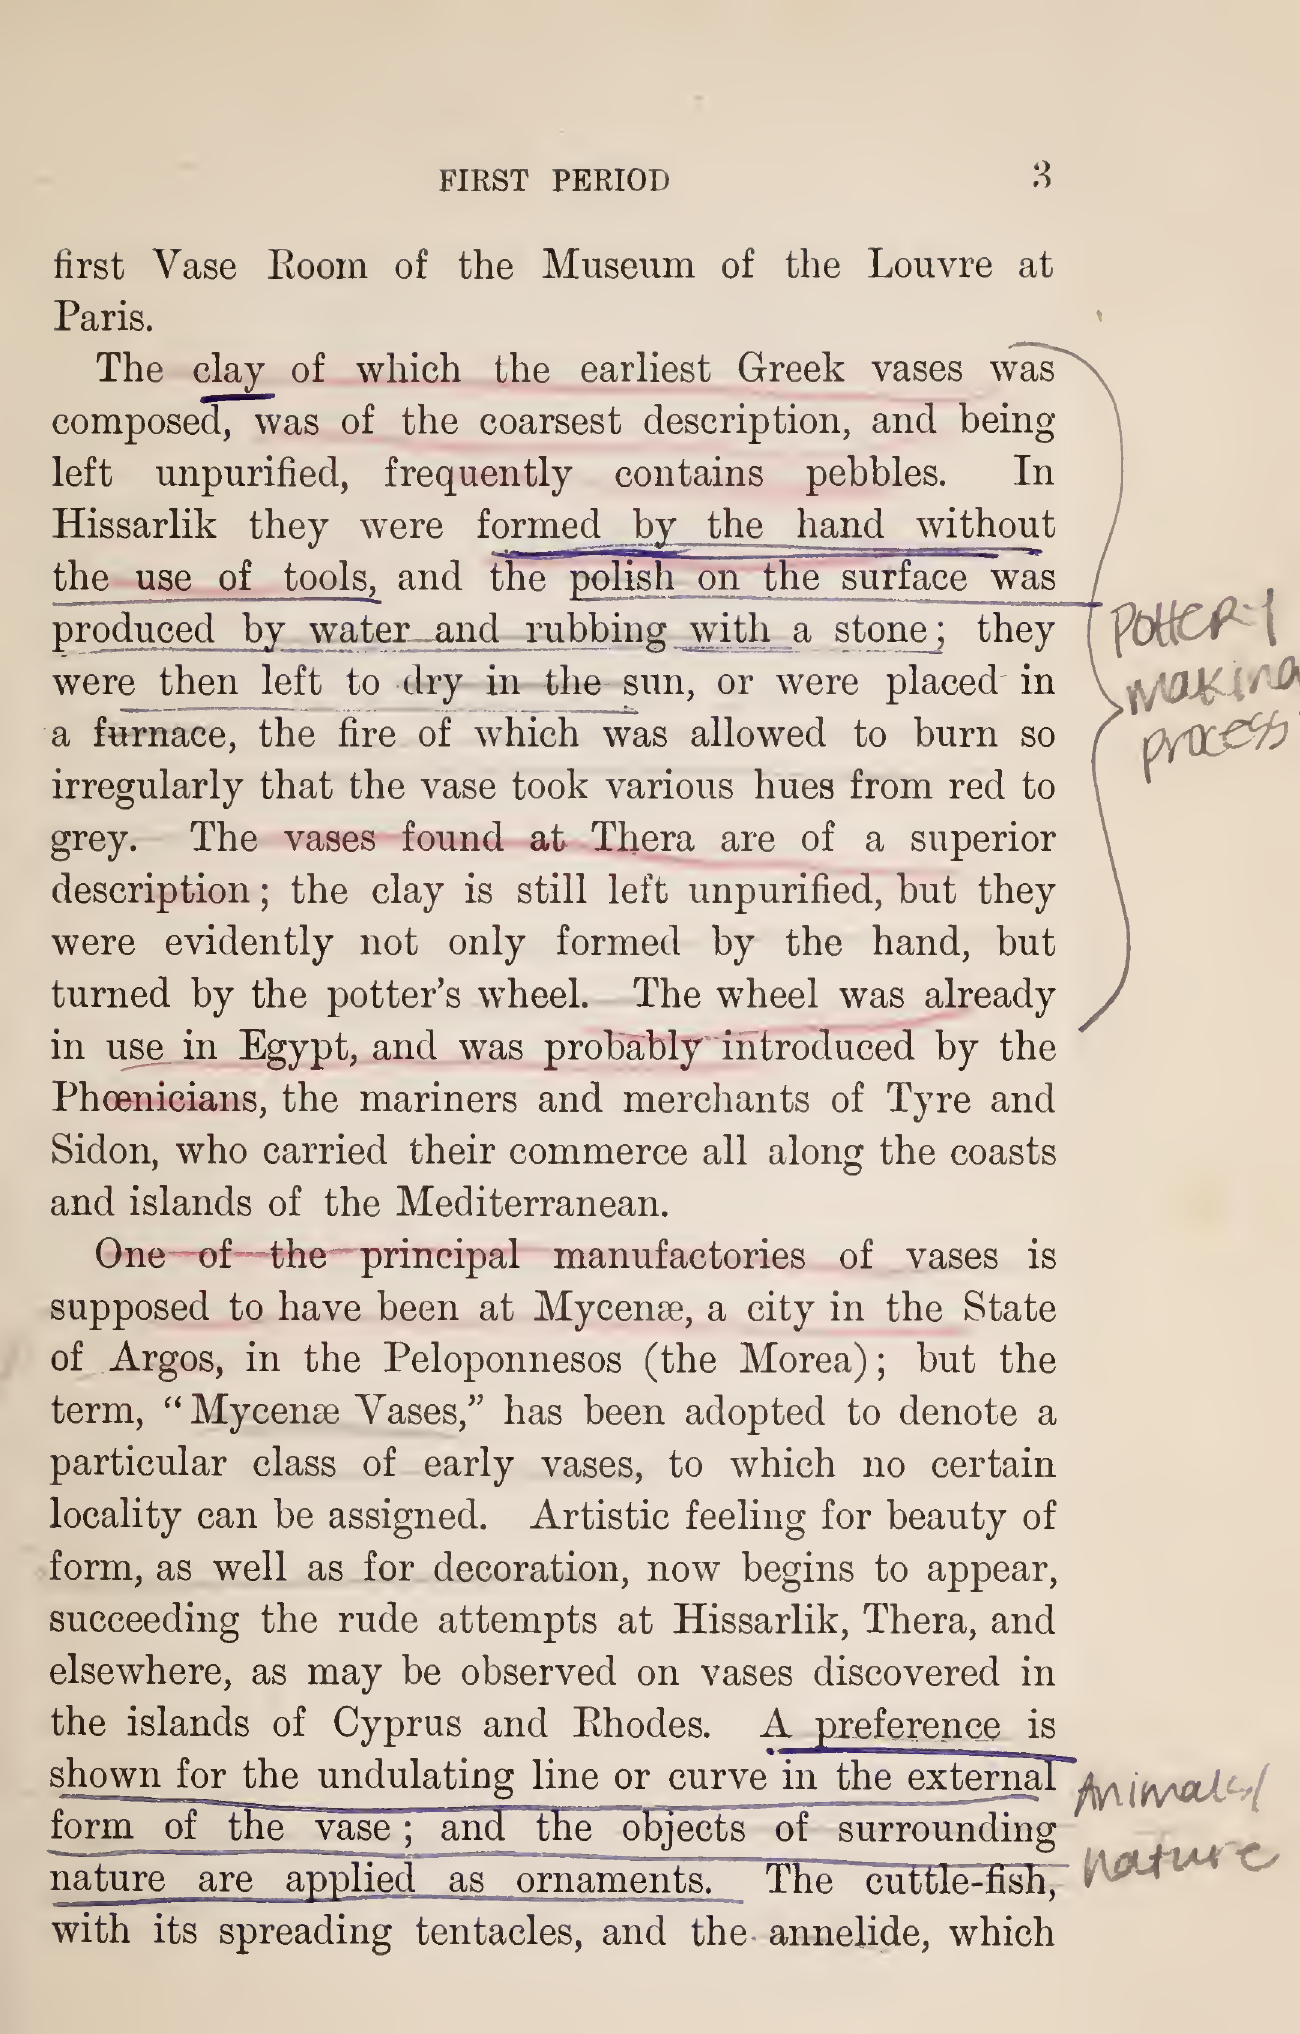 FIRST PERIOD 3
first Vase Room of the Museum of the Louvre at
Paris.
The clay of which the earliest Greek vases was
composed, was of the coarsest description, and being
left unpurified, frequently contains pebbles. In
Hissarlik they were formed by the hand without
the use of tools, and the polish on the surface was
produced by water and rubbing with a stone; they
were then left to dry in the sun, or were placed in
a furnace, the fire of which was allowed to burn so
irregularly that the vase took various hues from red to
grey. The vases found at Thera are of a superior
description; the clay is still left unpurified, but they
were evidently not only formed by the hand, but
turned by the potter's wheel. The wheel was already
in use in Egypt, and was probably introduced by the
Phœnicians, the mariners and merchants of Tyre and
Sidon, who carried their commerce all along the coasts
and islands of the Mediterranean.
One of the principal manufactories of vases is
supposed to have been at Mycenæ, a city in the State
of Argos, in the Peloponnesos (the Morea); but the
term, "Mycenæ Vases," has been adopted to denote a
particular class of early vases, to which no certain
locality can be assigned. Artistic feeling for beauty of
form, as well as for decoration, now begins to appear,
succeeding the rude attempts at Hissarlik, Thera, and
elsewhere, as may be observed on vases discovered in
the islands of Cyprus and Rhodes. A preference is
shown for the undulating line or curve in the external
form of the vase; and the objects of surrounding
nature are applied as ornaments. The cuttle-fish,
with its spreading tentacles, and the annelide, which
Pottery
making
process
Animals/
nature